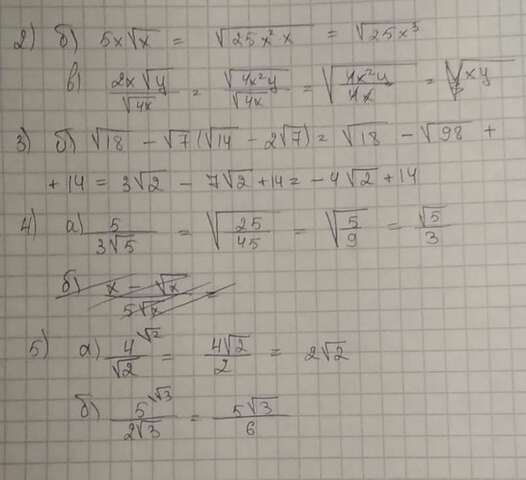 2) б) 5x√x = √(25x²x) = √(25x³)
в) 2x√y/√(4x) = √(4x²y)/√(4x) = √(4x²y/4x) = √(xy)
3) б) √18 - √7(√14 - 2√7) = √18 - √98 +
+ 14 = 3√2 - 7√2 + 14 = -4√2 + 14
4) а) 5/(3√5) = √(25/45) = √(5/9) = √5/3
б) (x - √x)/(5√x) =
5) а) 4^√2/√2 = 4√2/2 = 2√2
б) 5^√3/(2√3) = 5√3/6